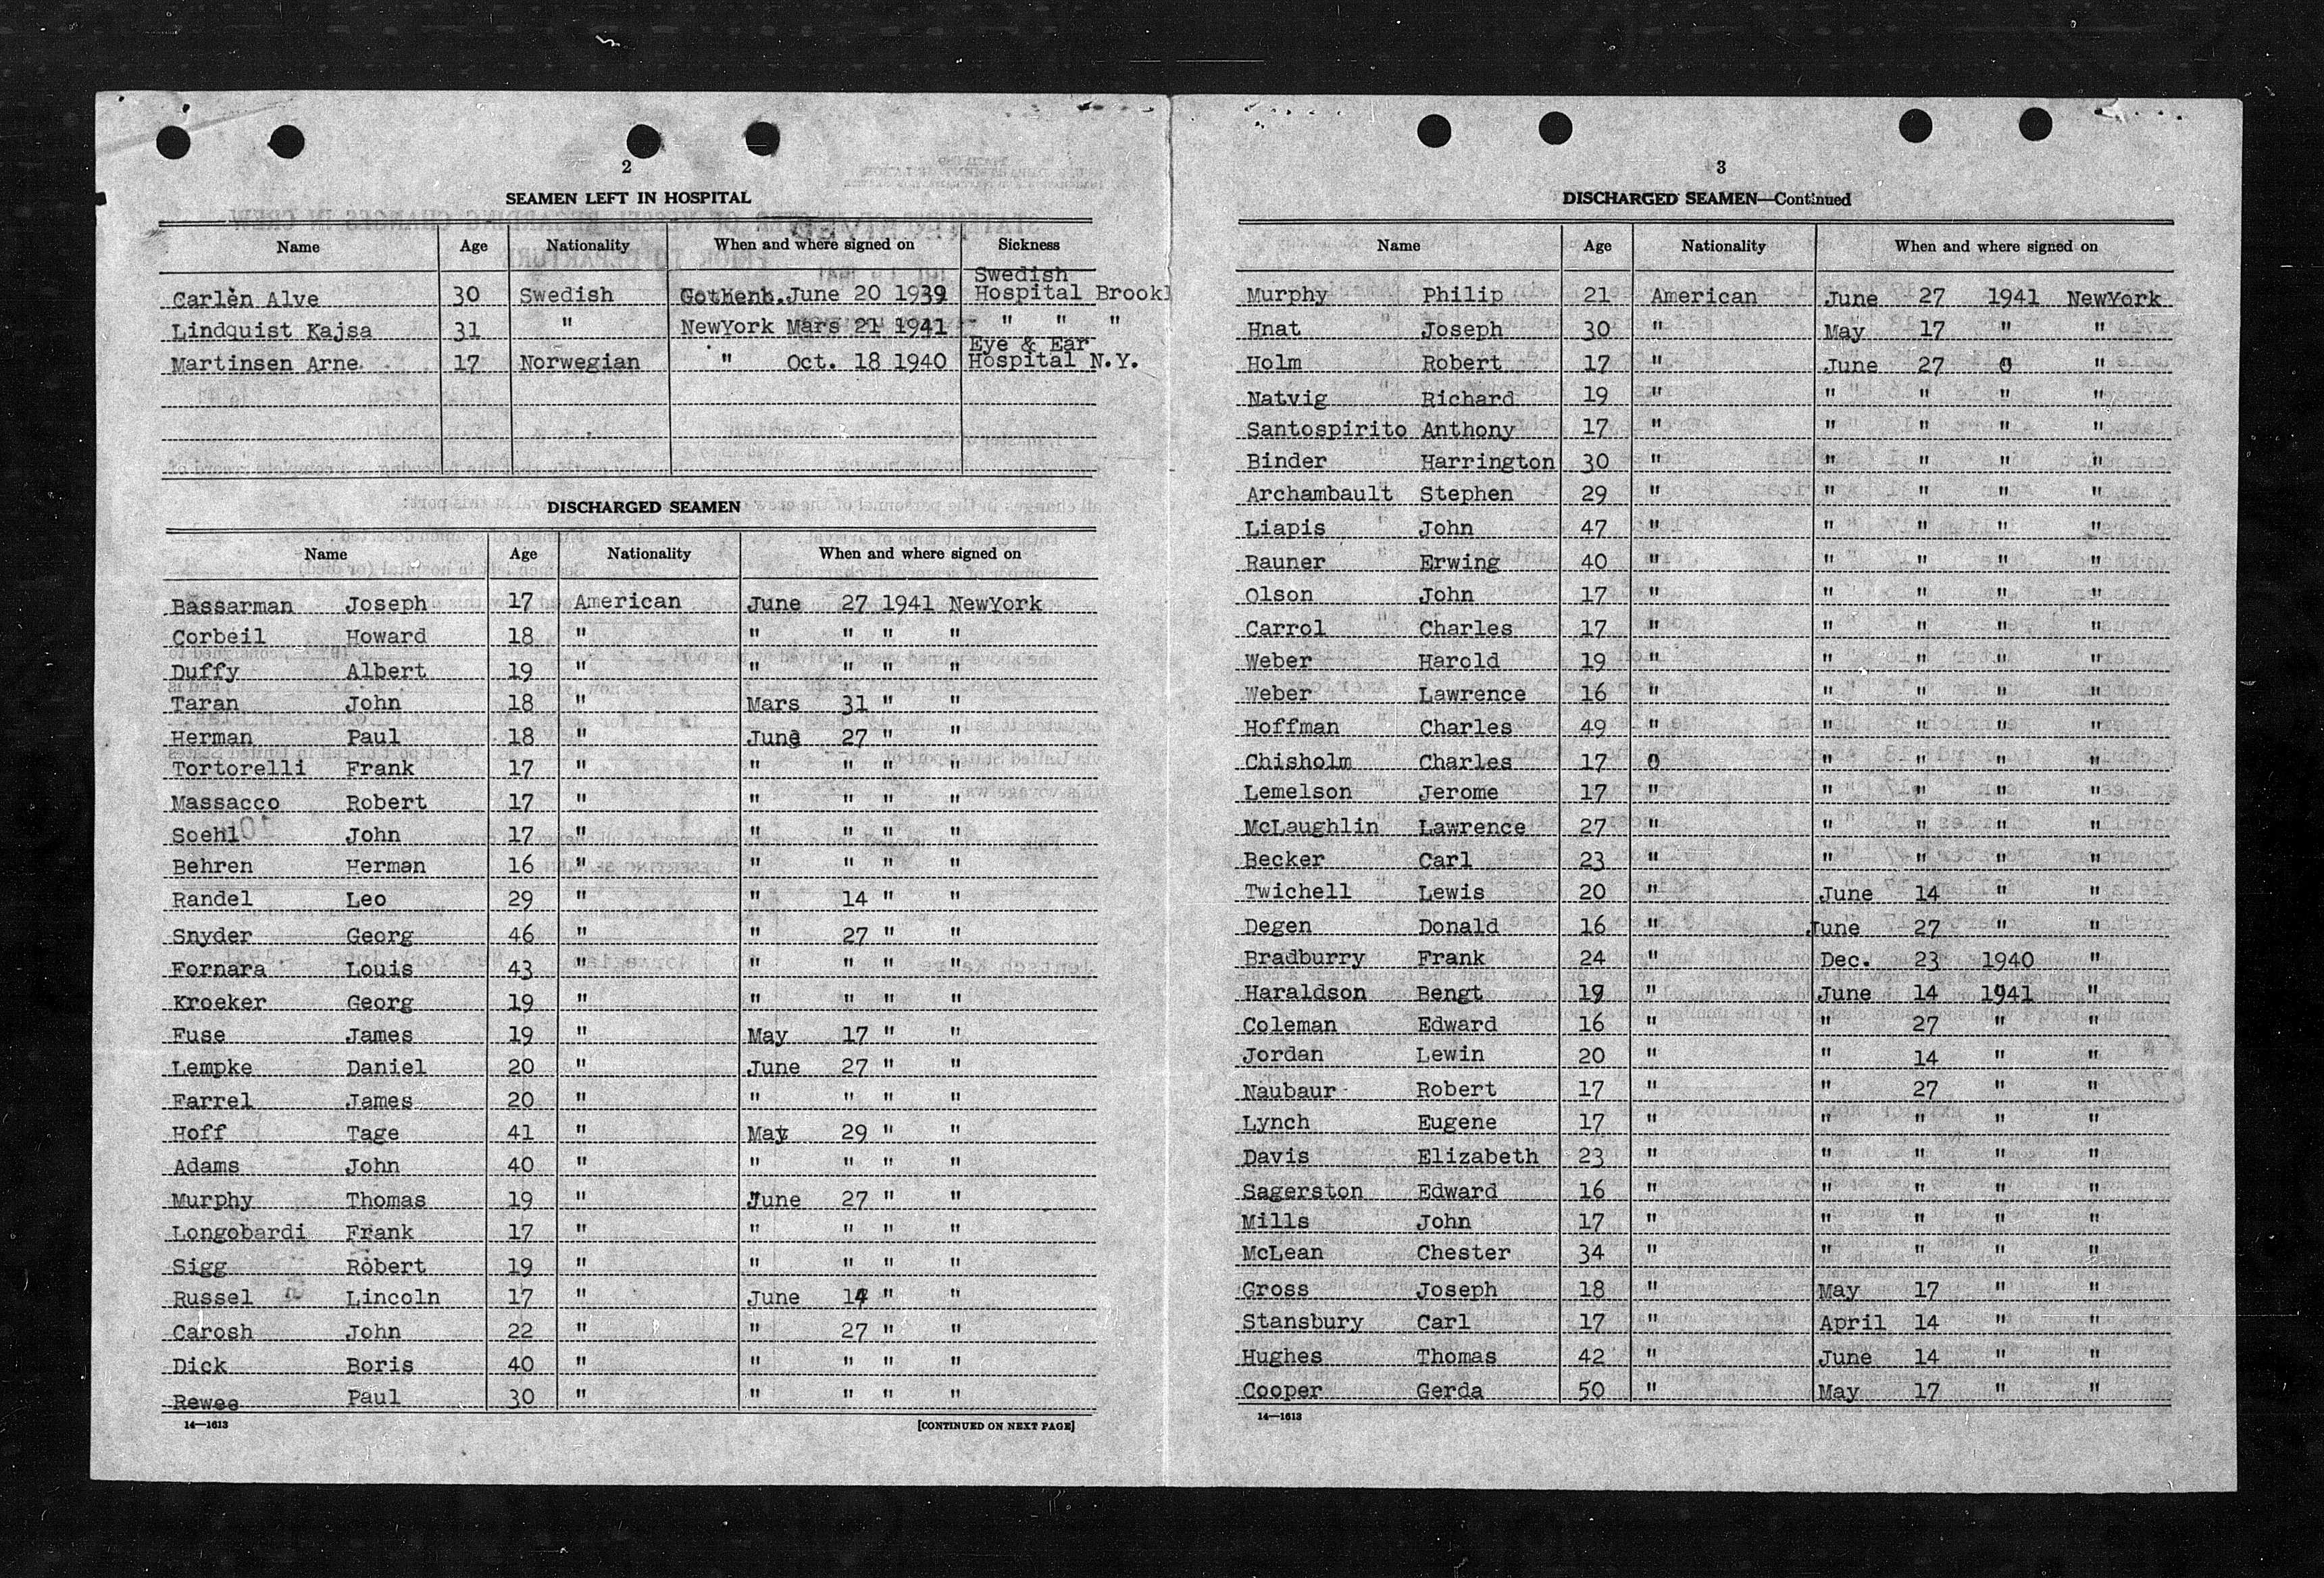 2
SEAMEN LEFT IN HOSPITAL
Name Age Nationality When and where signed on Sickness
Swedish
Carlèn Alve 30 Swedish Gothenb. June 20 1939 Hospital Brookl
Lindquist Kajsa 31 " NewYork Mars 21 1941 " " "
Eye & Ear
Martinsen Arne 17 Norwegian " Oct. 18 1940 Hospital N.Y.
DISCHARGED SEAMEN
Name Age Nationality When and where signed on
Bassarman Joseph 17 American June 27 1941 NewYork
Corbeil Howard 18 " " " " "
Duffy Albert 19 " " " " "
Taran John 18 " Mars 31 " "
Herman Paul 18 " June 27 " "
Tortorelli Frank 17 " " " " "
Massacco Robert 17 " " " " "
Soehl John 17 " " " " "
Behren Herman 16 " " " " "
Randel Leo 29 " " 14 " "
Snyder Georg 46 " " 27 " "
Fornara Louis 43 " " " " "
Kroeker Georg 19 " " " " "
Fuse James 19 " May 17 " "
Lempke Daniel 20 " June 27 " "
Farrel James 20 " " " " "
Hoff Tage 41 " May 29 " "
Adams John 40 " " " " "
Murphy Thomas 19 " June 27 " "
Longobardi Frank 17 " " " " "
Sigg Robert 19 " " " " "
Russel Lincoln 17 " June 14 " "
Carosh John 22 " " 27 " "
Dick Boris 40 " " " " "
Rewee Paul 30 " " " " "
14—1613 [CONTINUED ON NEXT PAGE]
3
DISCHARGED SEAMEN—Continued
Name Age Nationality When and where signed on
Murphy Philip 21 American June 27 1941 NewYork
Hnat Joseph 30 " May 17 " "
Holm Robert 17 " June 27 " "
Natvig Richard 19 " " " " "
Santospirito Anthony 17 " " " " "
Binder Harrington 30 " " " " "
Archambault Stephen 29 " " " " "
Liapis John 47 " " " " "
Rauner Erwing 40 " " " " "
Olson John 17 " " " " "
Carrol Charles 17 " " " " "
Weber Harold 19 " " " " "
Weber Lawrence 16 " " " " "
Hoffman Charles 49 " " " " "
Chisholm Charles 17 " " " " "
Lemelson Jerome 17 " " " " "
McLaughlin Lawrence 27 " " " " "
Becker Carl 23 " " " " "
Twichell Lewis 20 " June 14 " "
Degen Donald 16 " June 27 " "
Bradburry Frank 24 " Dec. 23 1940 "
Haraldson Bengt 19 " June 14 1941 "
Coleman Edward 16 " " 27 " "
Jordan Lewin 20 " " 14 " "
Naubaur Robert 17 " " 27 " "
Lynch Eugene 17 " " " " "
Davis Elizabeth 23 " " " " "
Sagerston Edward 16 " " " " "
Mills John 17 " " " " "
McLean Chester 34 " " " " "
Gross Joseph 18 " May 17 " "
Stansbury Carl 17 " April 14 " "
Hughes Thomas 42 " June 14 " "
Cooper Gerda 50 " May 17 " "
14—1613